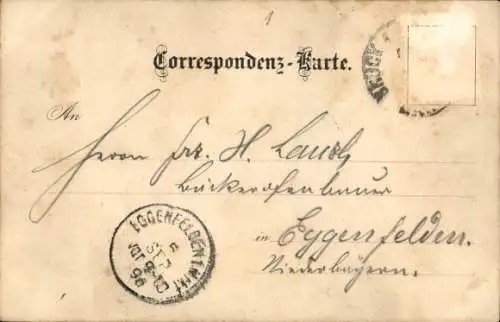 1
Correspondenz-Karte.
An
Herrn Frz. H. Lausch
Bäckerofenbauer
in Eggenfelden.
Niederbayern.
EGGENFELDEN
SEP
98